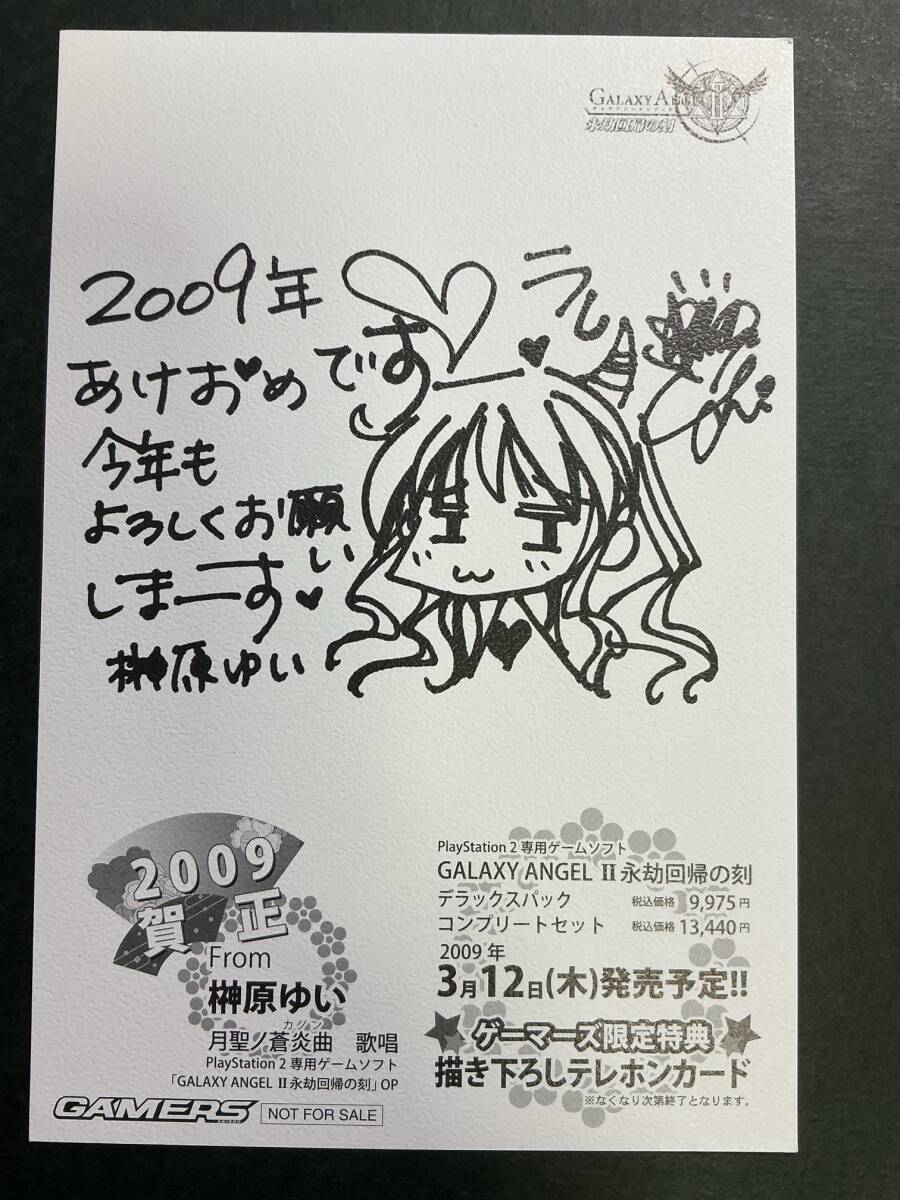 GALAXY ANGEL II
永劫回帰の刻
2009年
あけおめです
今年も
よろしくお願い
しまーす
榊原ゆい
2009
賀正
From
榊原ゆい
カノン
月聖ノ蒼炎曲 歌唱
PlayStation 2 専用ゲームソフト
「GALAXY ANGEL II 永劫回帰の刻」OP
GAMERS
NOT FOR SALE
PlayStation 2 専用ゲームソフト
GALAXY ANGEL II 永劫回帰の刻
デラックスパック 税込価格 9,975円
コンプリートセット 税込価格 13,440円
2009 年
3月12日(木)発売予定!!
ゲーマーズ限定特典
描き下ろしテレホンカード
※なくなり次第終了となります。